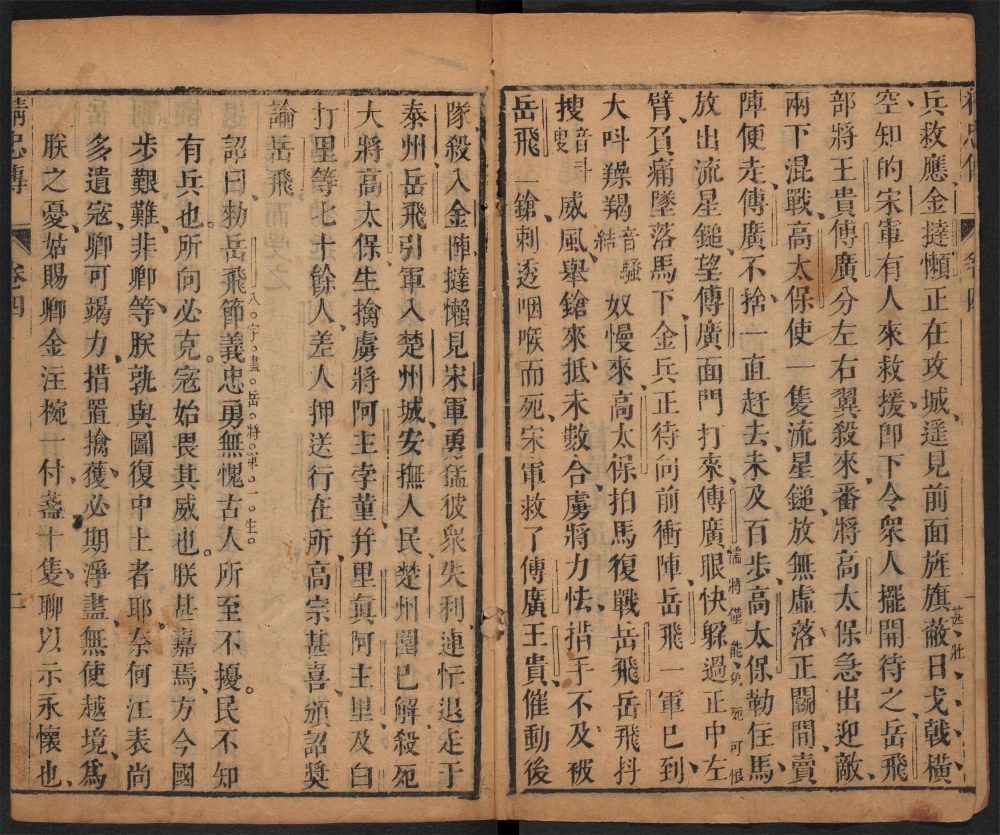 精忠傳 卷四 一
兵救應金撻懶正在攻城遥見前面旌旗蔽日戈戟橫
甚壯
空知的宋軍有人來救援卽下令衆人擺開待之岳飛
部將王貴傅廣分左右翼殺來番將高太保急出迎敵
兩下混戰高太保使一隻流星鎚放無虛落正鬬間賣
陣便走傅廣不捨一直赶去未及百步高太保勒住馬
放出流星鎚望傅廣面門打來傅廣眼快躱過正中左
懦將僅能免死可恨
臂負痛墜落馬下金兵正待向前衝陣岳飛一軍已到
大呌羶羯音騷結奴慢來高太保拍馬復戰岳飛岳飛抖
搜音叟威風舉鎗來抵未數合虜將力怯措手不及被
岳飛一鎗刺透咽喉而死宋軍救了傅廣王貴催動後
隊殺入金陣撻懶見宋軍勇猛彼衆失利連忙退走于
泰州岳飛引軍入楚州城安撫人民楚州圍已解殺死
大將高太保生擒虜將阿主孛菫幷里眞阿主里及白
打里等七十餘人差人押送行在所高宗甚喜頒詔奬
諭岳飛
八字盡岳將軍一生
詔曰勑岳飛節義忠勇無愧古人所至不擾民不知
有兵也所向必克寇始畏其威也朕甚嘉焉方今國
步艱難非卿等朕孰與圖復中土者耶奈何江表尚
多遺寇卿可竭力措置擒獲必期淨盡無使越境爲
朕之憂姑賜卿金注椀一付盞十隻聊以示永懷也
精忠傳 卷四 二